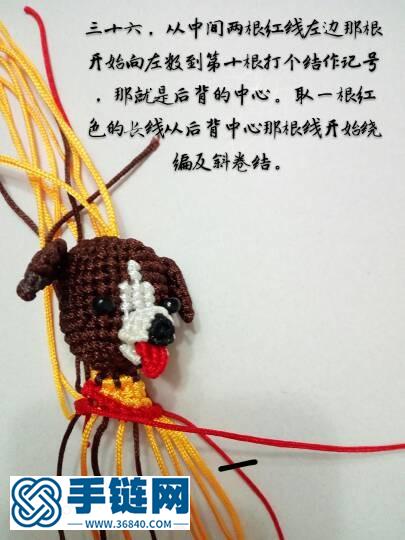 三十六，从中间两根红线左边那根
开始向左数到第十根打个结作记号
，那就是后背的中心。取一根红
色的长线从后背中心那根线开始绕
编反斜卷结。
手链网
WWW.36840.COM